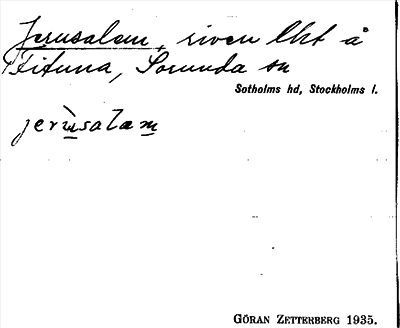 Jerusalem, riven lht å
Fituna, Sorunda sn
Sotholms hd, Stockholms l.
jerùsalam
GÖRAN ZETTERBERG 1935.